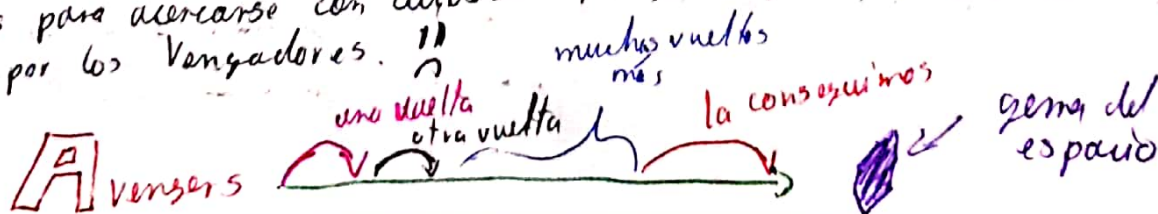 para acercarse con
por los Vengadores.
muchas vueltas
más
una vuelta
otra vuelta
la conseguimos
gema del
espacio
Avengers